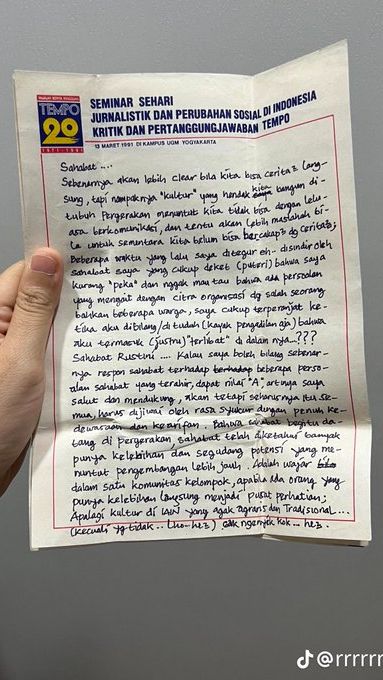 MAJALAH BERITA MINGGUAN
TEMPO
20
1971-1991
SEMINAR SEHARI
JURNALISTIK DAN PERUBAHAN SOSIAL DI INDONESIA
KRITIK DAN PERTANGGUNGJAWABAN TEMPO
13 MARET 1991 DI KAMPUS UGM YOGYAKARTA
Sahabat ....
Sebenarnya akan lebih clear bila kita bisa cerita2 lang-
sung, tapi nampaknya "kultur" yang hendak kita bangun di-
tubuh Pergerakan menuntut kita tidak bisa dengan lelu-
asa berkomunikasi, dan tentu akan lebih maslahah bi-
la untuk sementara kita belum bisa bercakap2 dg cerita2;
Beberapa waktu yang lalu saya ditegur eh- disindir oleh
sahabat saya yang cukup deket (puteri) bahwa saya
kurang "peka" dan nggak mau tau bahwa ada persoalan
yang mengait dengan citra organisasi dg salah seorang
bahkan beberapa warga, saya cukup terperanjat ke-
tika aku dibilang/dituduh (kayak pengadilan aja) bahwa
aku termasuk (justru) "terlibat" di dalam nya...???
Sahabat Rustini .... Kalau saya boleh bilang sebenar-
nya respon sahabat terhadap beberapa perso-
alan sahabat yang terahir, dapat nilai "A", artinya saya
salut dan mendukung, akan tetapi seharusnya itu se-
mua, harus dijiwai oleh rasa syukur dengan penuh ke-
dewasaan dan kearifan. Bahwa sahabat begitu da-
tang di pergerakan sahabat telah diketahui banyak
punya kelebihan dan segudang potensi yang me-
nuntut pengembangan lebih jauh. Adalah wajar
dalam satu komunitas kelompok, apabila ada orang yang
punya kelebihan langsung menjadi pusat perhatian;
Apalagi kultur di IAIN yang agak agraris dan Tradisional ....
(kecuali yg tidak .. lho-he2) gak ngenyek kok ... he2.
@rrrrrr